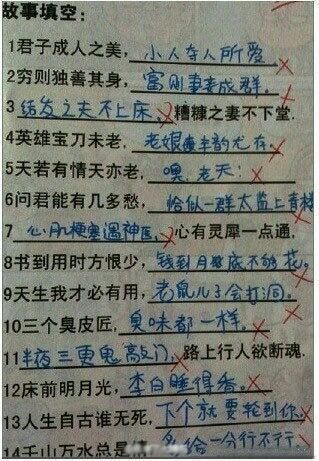 故事填空:
1君子成人之美,小人夺人所爱。
2穷则独善其身,富则妻妾成群。
3结发之夫不上床,糟糠之妻不下堂.
4英雄宝刀未老,老娘风韵尤存。
5天若有情天亦老,噢,老天!
6问君能有几多愁,恰似一群太监上青楼
7心肌梗塞遇神医,心有灵犀一点通,
8书到用时方恨少,钱到月底不够花。
9天生我才必有用,老鼠儿子会打洞。
10三个臭皮匠,臭味都一样。
11半夜三更鬼敲门,路上行人欲断魂.
12床前明月光,李白睡得香。
13人生自古谁无死,下个就要轮到你。
14千山万水总是 给一分行不行。